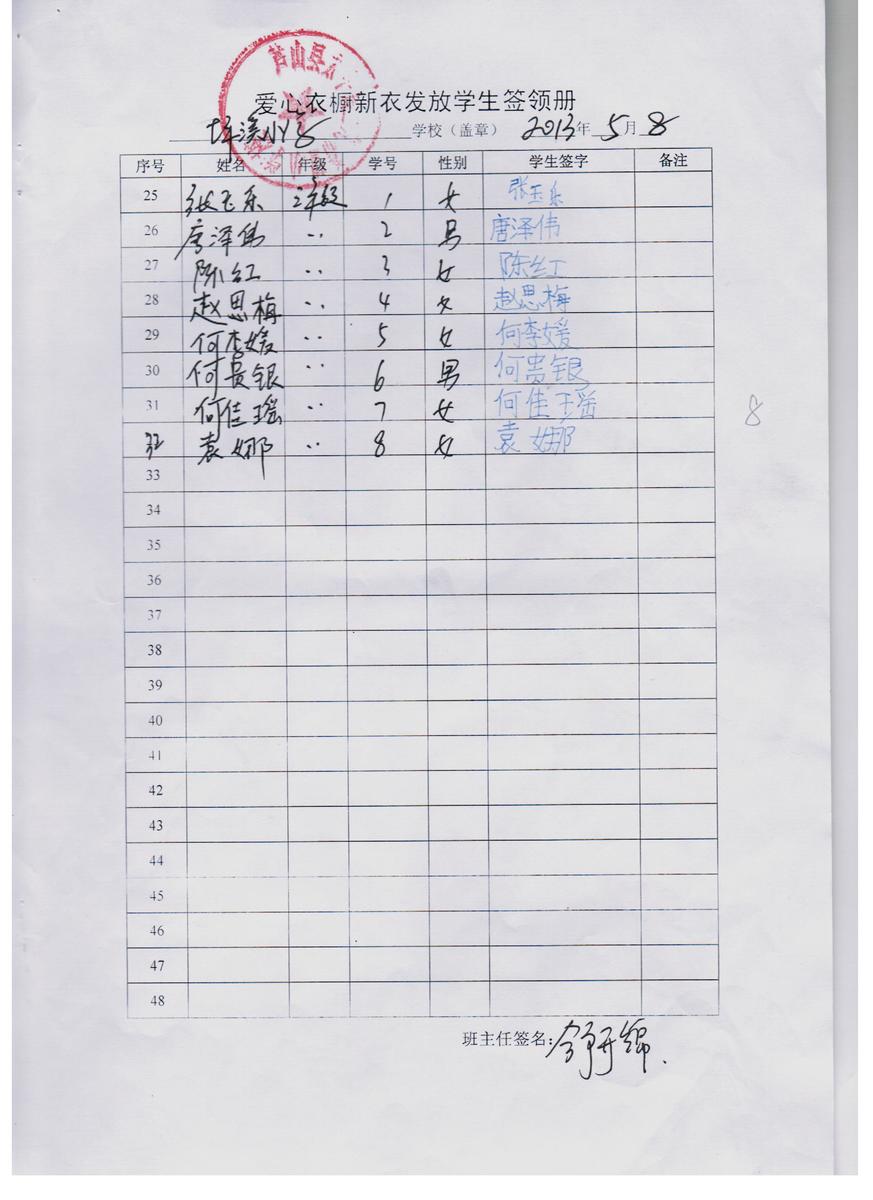 芦山县
爱心衣橱新衣发放学生签领册
学校（盖章） 2013年 5月 8
序号 姓名 年级 学号 性别 学生签字 备注
25 张玉乐 2年级 1 女 张玉乐
26 唐泽伟 ·· 2 男 唐泽伟
27 陈红 ·· 3 女 陈红
28 赵思梅 ·· 4 女 赵思梅
29 何李媛 ·· 5 女 何李媛
30 何贵银 ·· 6 男 何贵银
31 何佳瑶 ·· 7 女 何佳瑶
8
32 袁娜 ·· 8 女 袁娜
33
34
35
36
37
38
39
40
41
42
43
44
45
46
47
48
班主任签名：